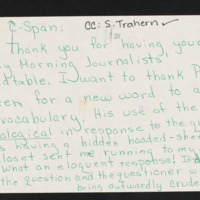 C-Span: CC: S. Trahern ✓
Thank you for having, your
y Morning Journalists'
dtable. I want to thank P
en for a new word to a
vocabulary. His use of the
ological in response to the qu
s having a hidden hooded-shee
loset sent me running to my
what an eloquent response! It d
the question and the questioner w
being awkwardly crude